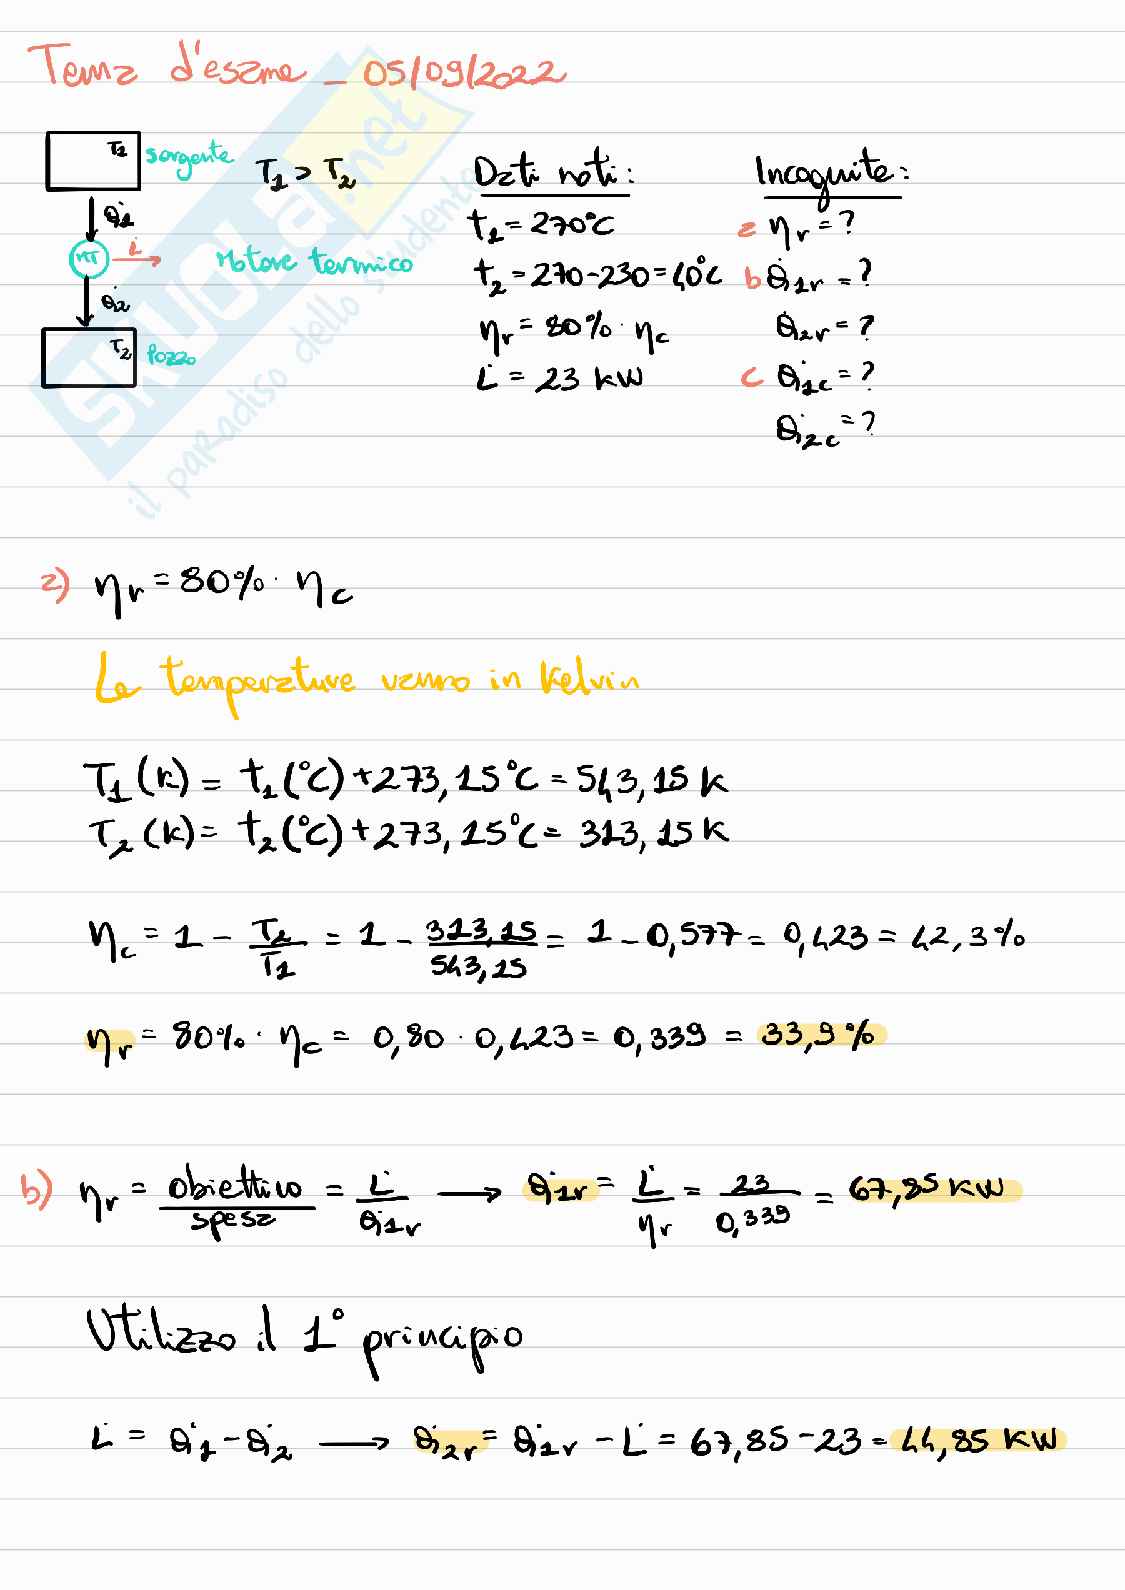 Tema d'esame _ 05/09/2022
T1 sorgente
T1 > T2
Q̇1
MT L̇ Motore termico
Q̇2
T2 Pozzo
Dati noti:
t1 = 270°C
t2 = 270-230 = 40°C
ηr = 80% · ηc
L̇ = 23 kW
Incognite:
a ηr = ?
b Q̇1r = ?
Q̇2r = ?
c Q̇1c = ?
Q̇2c = ?
SKUOLA.net
il paradiso dello studente
a) ηr = 80% · ηc
Le temperature vanno in Kelvin
T1 (K) = t1 (°C) + 273,15°C = 543,15 K
T2 (K) = t2 (°C) + 273,15°C = 313,15 K
ηc = 1 - T2/T1 = 1 - 313,15/543,15 = 1 - 0,577 = 0,423 = 42,3%
ηr = 80% · ηc = 0,80 · 0,423 = 0,339 = 33,9%
b) ηr = obiettivo/spesa = L̇/Q̇1r → Q̇1r = L̇/ηr = 23/0,339 = 67,85 KW
Utilizzo il 1° principio
L̇ = Q̇1 - Q̇2 → Q̇2r = Q̇1r - L̇ = 67,85 - 23 = 44,85 KW